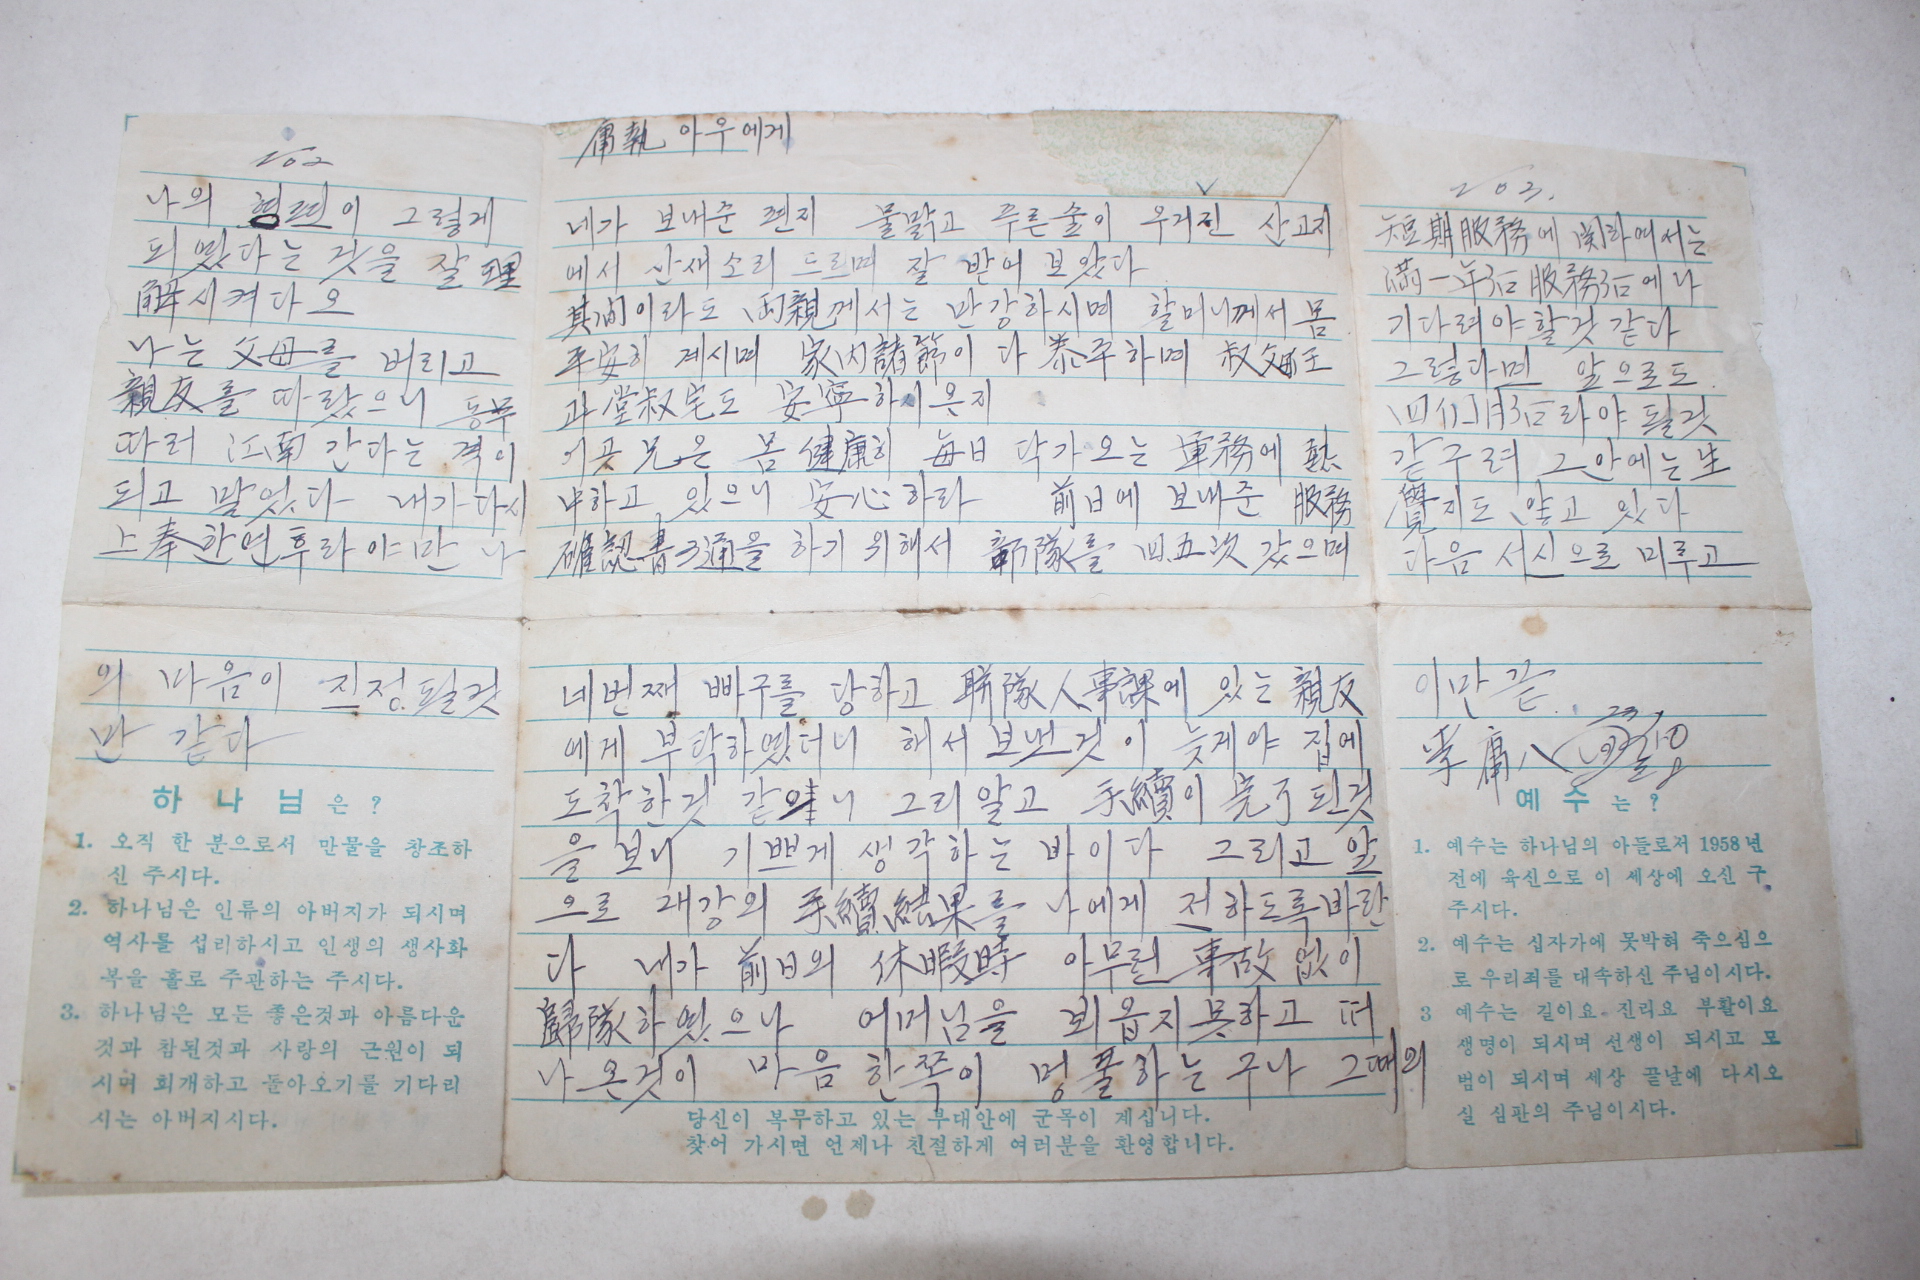 庸執 아우에게
네가 보내준 편지 물맑고 푸른술이 우거진 산고지
에서 산새소리 드르며 잘 받어 보았다
其间이라도 両親께서는 만강하시며 할머니께서 몸
平安히 계시며 家内諸節이 다 泰平하며 叔父主
과 堂叔宅도 安寧하시온지
이곳 兄은 몸 健康히 每日 닥가오는 軍務에 熱
中하고 있으니 安心하라 前日에 보내준 服務
確認書 3通을 하기 위해서 部隊를 四五次 갔으며
네번째 빠구를 당하고 聯隊人事課에 있는 親友
에게 부탁하였더니 해서 보낸것이 늦게야 집에
도착한것 같으니 그리알고 手續이 完了된것
을 보니 기쁘게 생각하는 바이다 그리고 앞
으로 대강의 手續結果를 나에게 전하도록바란
다 내가 前日의 休暇時 아무런 事故없이
歸隊하였으나 어머님을 뵈옵지 못하고 떠
나온것이 마음 한쪽이 멍풀하는구나 그때의
당신이 복무하고 있는 부대안에 군목이 계십니다.
찾어 가시면 언제나 친절하게 여러분을 환영합니다.
202
나의 형편이 그렇게
되였다는 것을 잘 理
解시켜다오
나는 父母를 버리고
親友를 따랐으니 동무
따러 江南 간다는 격이
되고 말었다 내가 다시
上奉한연후라야만 나
의 마음이 진정될것
만 같다
하나님은?
1. 오직 한 분으로서 만물을 창조하
신 주시다.
2. 하나님은 인류의 아버지가 되시며
역사를 섭리하시고 인생의 생사화
복을 홀로 주관하는 주시다.
3. 하나님은 모든 좋은것과 아름다운
것과 참된것과 사랑의 근원이 되
시며 회개하고 돌아오기를 기다리
시는 아버지시다.
203.
短期服務에 関하여서는
満一年3곱服務3곱에나
기다려야할것 같다
그렇다면 앞으로도
四個月 라야 될것
같구려 그안에는 生
覺지도 않고 있다
다음 서신으로 미루고
이만 끝
李庸八
예수는?
1. 예수는 하나님의 아들로저 1958년
전에 육신으로 이 세상에 오신 구
주시다.
2. 예수는 십자가에 못박혀 죽으심으
로 우리죄를 대속하신 주님이시다.
3 예수는 길이요 진리요 부활이요
생명이 되시며 선생이 되시고 모
범이 되시며 세상 끝날에 다시오
실 심판의 주님이시다.